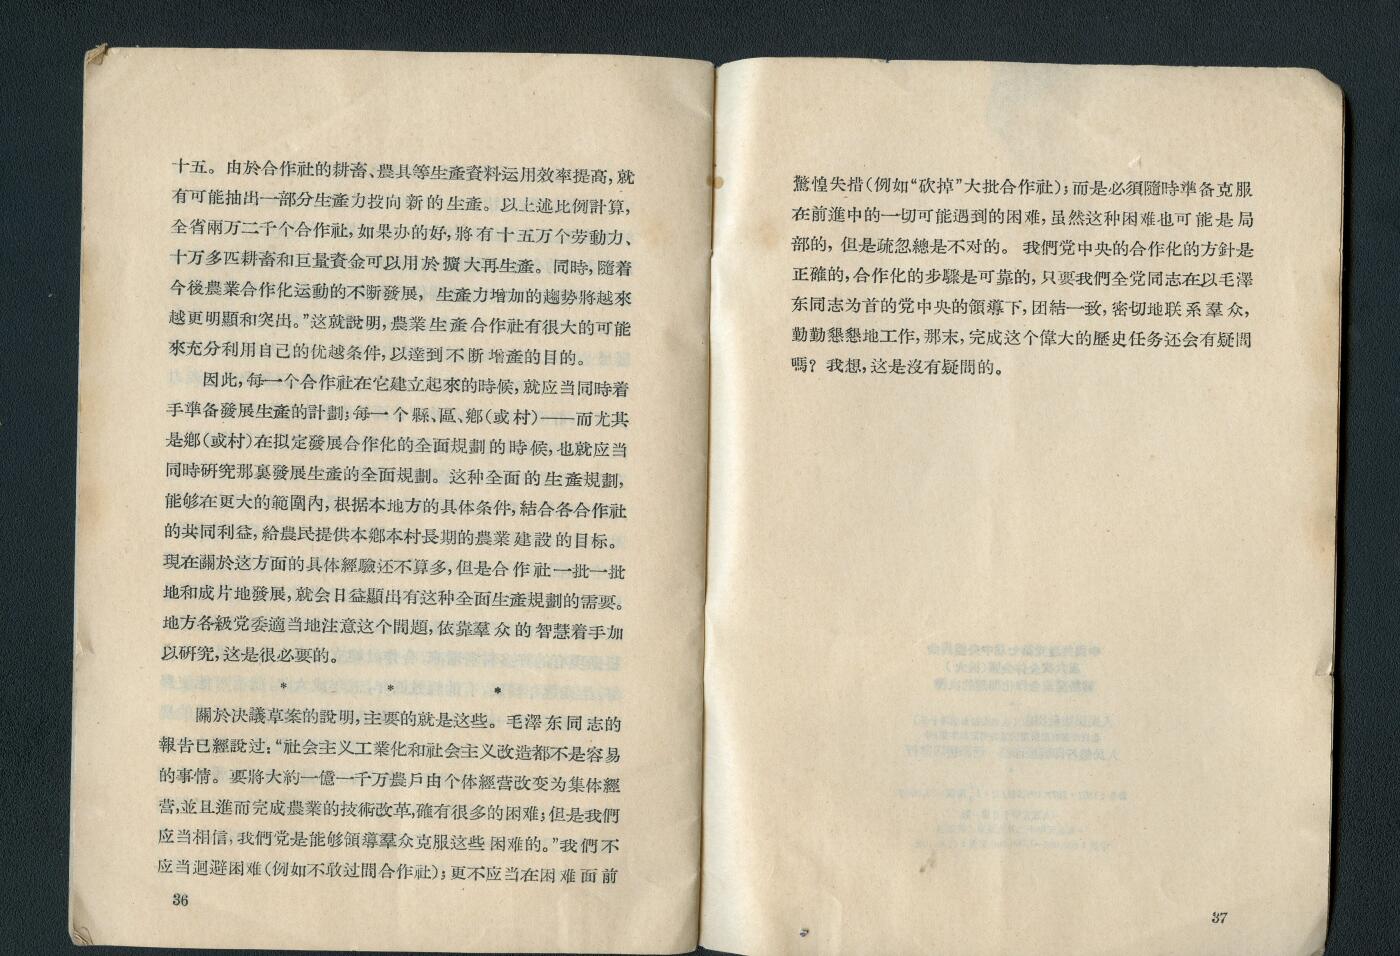 十五。由於合作社的耕畜、農具等生產資料运用效率提高,就
有可能抽出一部分生產力投向新的生產。以上述比例計算,
全省兩万二千个合作社,如果办的好,將有十五万个劳動力、
十万多匹耕畜和巨量資金可以用於擴大再生產。同時,隨着
今後農業合作化运動的不断發展,生產力增加的趨势將越來
越更明顯和突出。”这就說明,農業生產合作社有很大的可能
來充分利用自己的优越条件,以達到不断增產的目的。
因此,每一个合作社在它建立起來的時候,就应当同時着
手準备發展生產的計劃;每一个縣、區、鄉(或村)——而尤其
是鄉(或村)在拟定發展合作化的全面規劃的時候,也就应当
同時研究那裏發展生產的全面規劃。这种全面的生產規劃,
能够在更大的範圍內,根据本地方的具体条件,結合各合作社
的共同利益,給農民提供本鄉本村長期的農業建設的目标。
現在關於这方面的具体經驗还不算多,但是合作社一批一批
地和成片地發展,就会日益顯出有这种全面生產規劃的需要。
地方各級党委適当地注意这个問題,依靠羣众的智慧着手加
以研究,这是很必要的。
* * *
關於決議草案的說明,主要的就是这些。毛澤东同志的
報告已經說过:“社会主义工業化和社会主义改造都不是容易
的事情。要將大約一億一千万農戶由个体經营改变为集体經
营,並且進而完成農業的技術改革,確有很多的困难;但是我們
应当相信,我們党是能够領導羣众克服这些困难的。”我們不
应当迴避困难(例如不敢过問合作社);更不应当在困难面前
36
驚惶失措(例如“砍掉”大批合作社);而是必須隨時準备克服
在前進中的一切可能遇到的困难,虽然这种困难也可能是局
部的,但是疏忽總是不对的。我們党中央的合作化的方針是
正確的,合作化的步驟是可靠的,只要我們全党同志在以毛澤
东同志为首的党中央的領導下,团結一致,密切地联系羣众,
勤勤懇懇地工作,那末,完成这个偉大的歷史任务还会有疑問
嗎?我想,这是沒有疑問的。
37